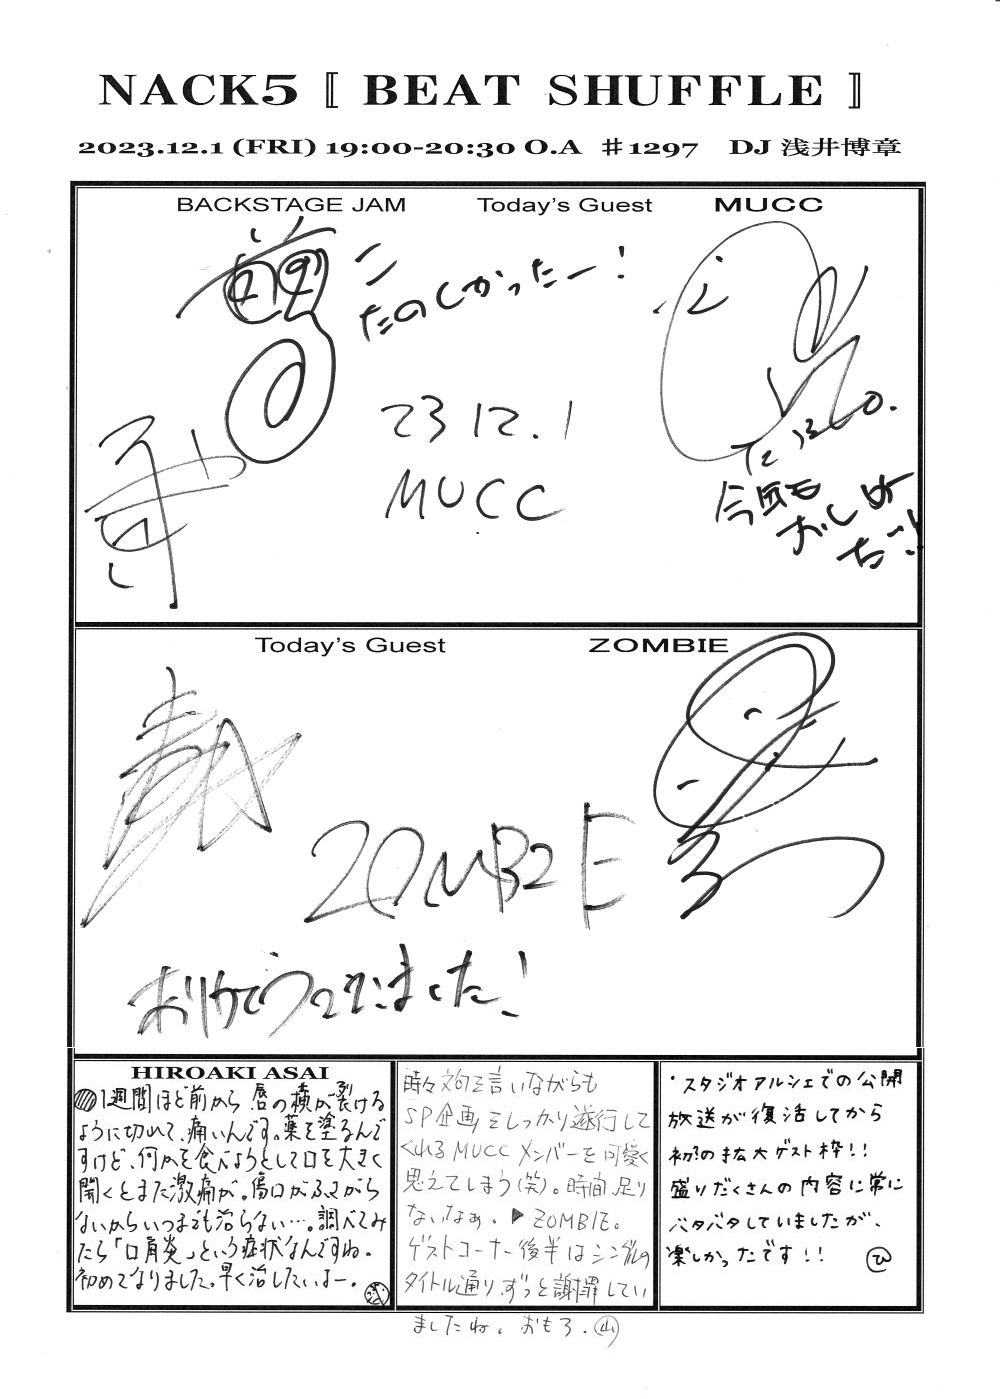 NACK5『 BEAT SHUFFLE 』
2023.12.1 (FRI) 19:00-20:30 O.A ♯1297 DJ 浅井博章
BACKSTAGE JAM Today's Guest MUCC
たのしかったー！
23 12. 1
MUCC
今年も
Today's Guest ZOMBIE
ZOMBIE
ました！
HIROAKI ASAI
1週間ほど前から唇の横が裂ける
ように切れて、痛いんです。薬を塗るんで
すけど、何かを食べようとして口を大きく
開くとまた激痛が。傷口がふさがら
ないからいつまでも治らない…。調べてみ
たら「口角炎」という症状なんですね。
初めてなりました。早く治したいよー。
時々文句を言いながらも
SP企画をしっかり遂行して
くれるMUCCメンバーを可愛く
思えてしまう(笑)。時間足り
ないなぁ。▶ZOMBIE。
ゲストコーナー後半はシングルの
タイトル通り、ずっと謝罪してい
ましたね。おもろ。㊤
・スタジオアルシェでの公開
放送が復活してから
初?の拡大ゲスト枠!!
盛りだくさんの内容に常に
バタバタしていましたが、
楽しかったです!! ひ